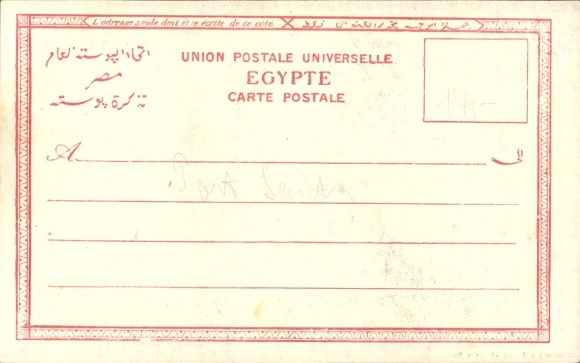 L'adresse seule doit être écrite de ce coté.
اتحاد البوسته العام
مصر
تذكرة بوسته
UNION POSTALE UNIVERSELLE
EGYPTE
CARTE POSTALE
14,-
A
الى
Port Saida